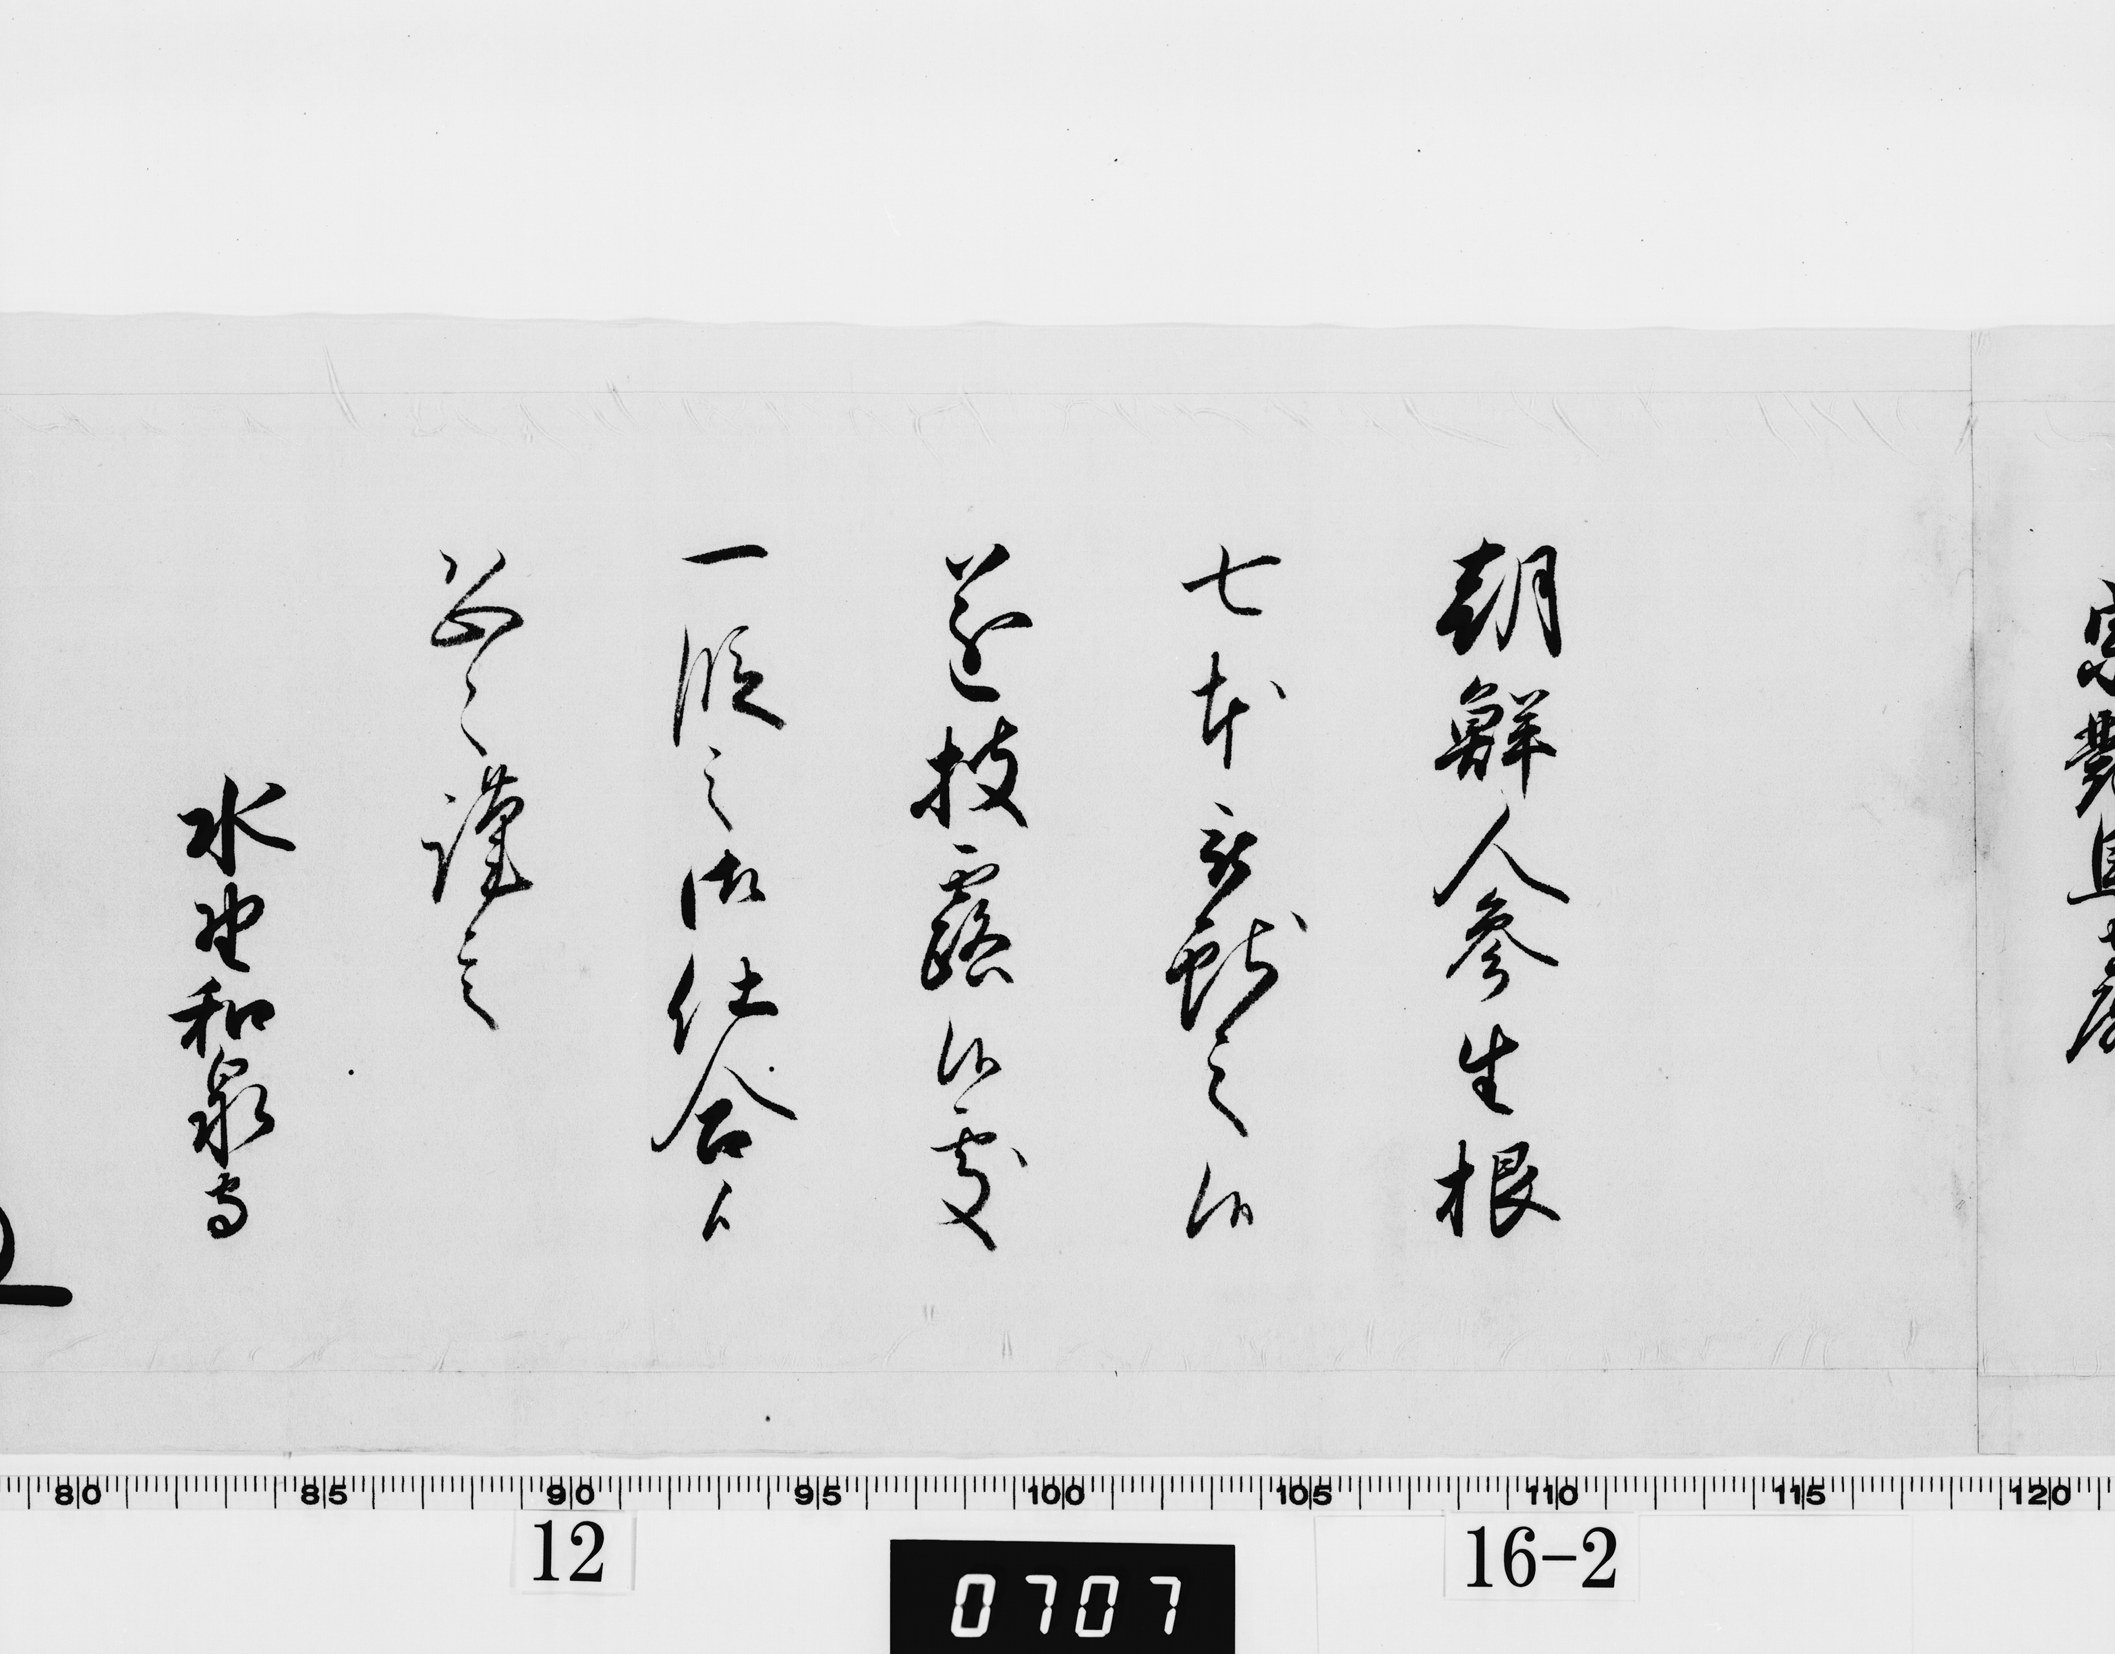 朝鮮人参生根
七本被献之候
遂披露候處
一段之御仕合候
恐々謹言
水野和泉守
80 85 90 95 100 105 110 115 120
12
0707
16-2